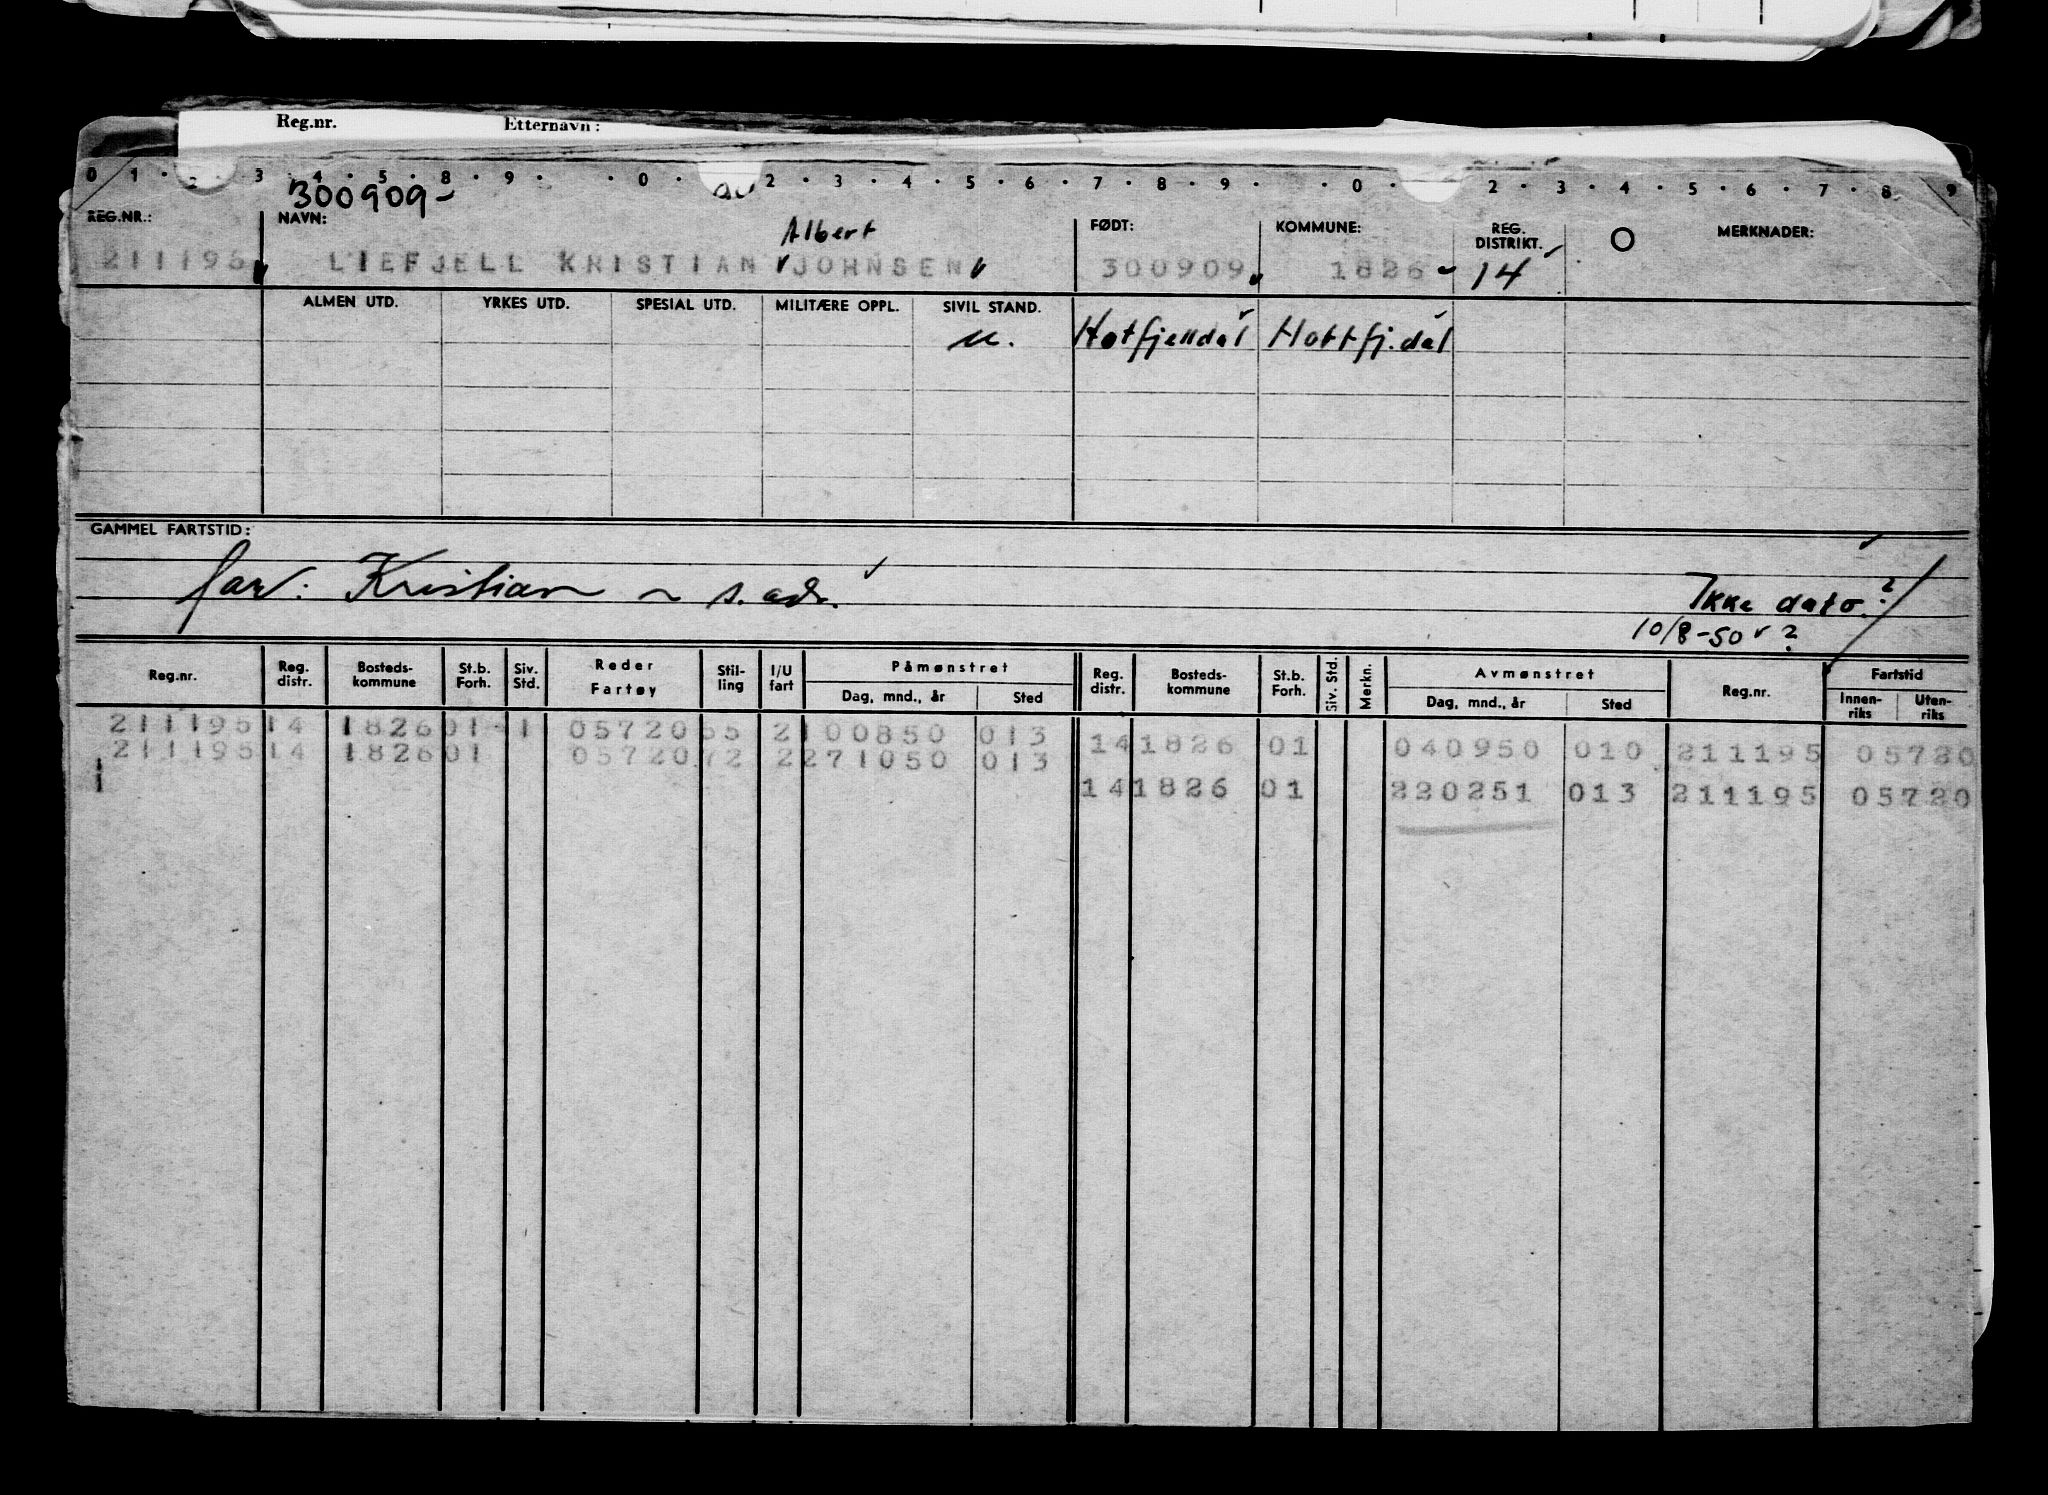 Reg.nr. Etternavn:
0 1 . 2 . 3 . 4 . 5 . 8 . 9 . . 0 . 2 . 3 . 4 . 5 . 6 . 7 . 8 . 9 . . 0 . 2 . 3 . 4 . 5 . 6 . 7 . 8 . 9
300909-
REG.NR.: NAVN: FØDT: KOMMUNE: REG. DISTRIKT. O MERKNADER:
Albert
211195 LIEFJELL KRISTIAN JOHNSEN 300909 1826 14
ALMEN UTD. YRKES UTD. SPESIAL UTD. MILITÆRE OPPL. SIVIL STAND.
u. Hatfjelldal Hattfj.dal
GAMMEL FARTSTID:
far: Kristian ~ s. adr.
Ikke dato?
10/8-50 ?
Reg.nr. Reg. distr. Bosteds-kommune St.b. Forh. Siv. Std. Reder Fartøy Stil-ling I/U fart Påmønstret Dag, mnd., år Sted Reg. distr. Bosteds-kommune St.b. Forh. Siv. Std. Merkn. Avmønstret Dag, mnd., år Sted Reg.nr. Fartstid Innen-riks Uten-riks
211195 14 1826 01 1 05720 55 2 100850 013 14 1826 01 040950 010 211195 05720
211195 14 1826 01 05720 72 2 271050 013
14 1826 01 220251 013 211195 05720